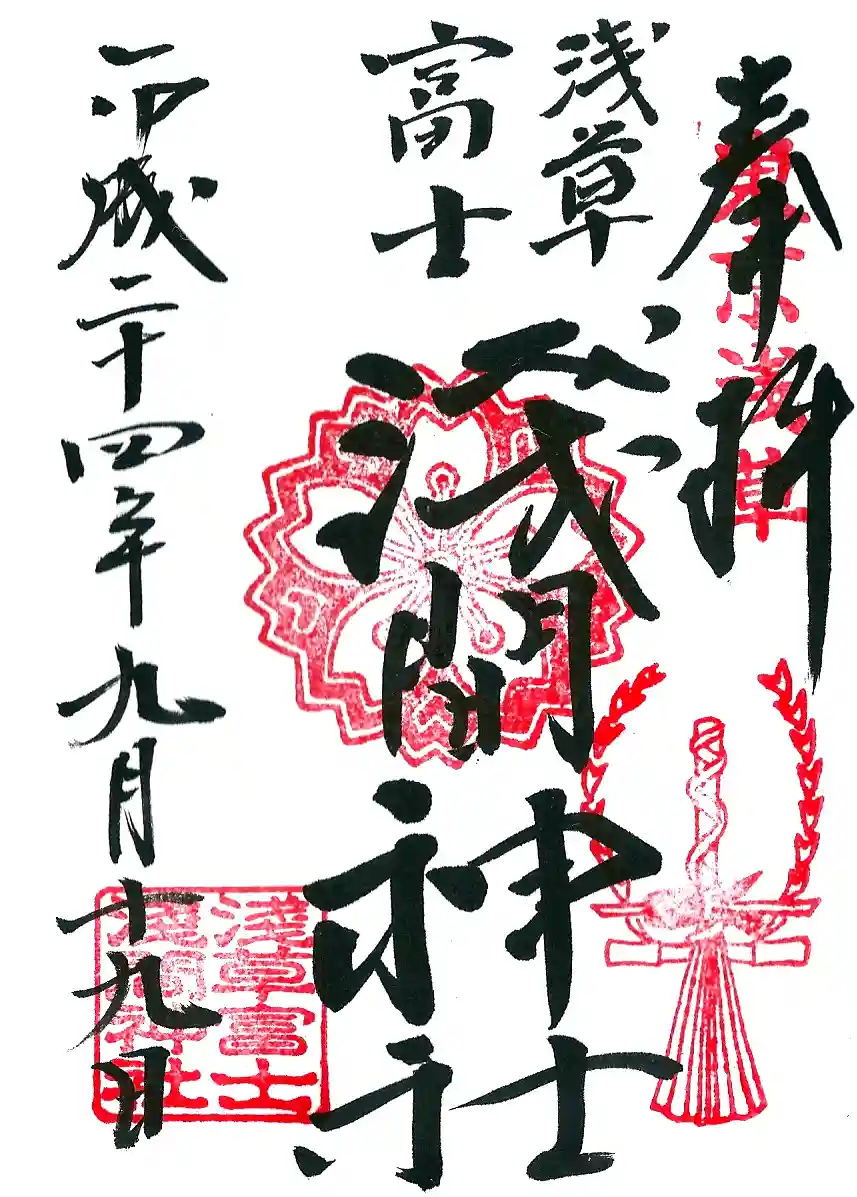 奉拝
東京浅草
浅草
富士
浅間神社
平成二十四年九月十九日
淺草富士
淺間神社